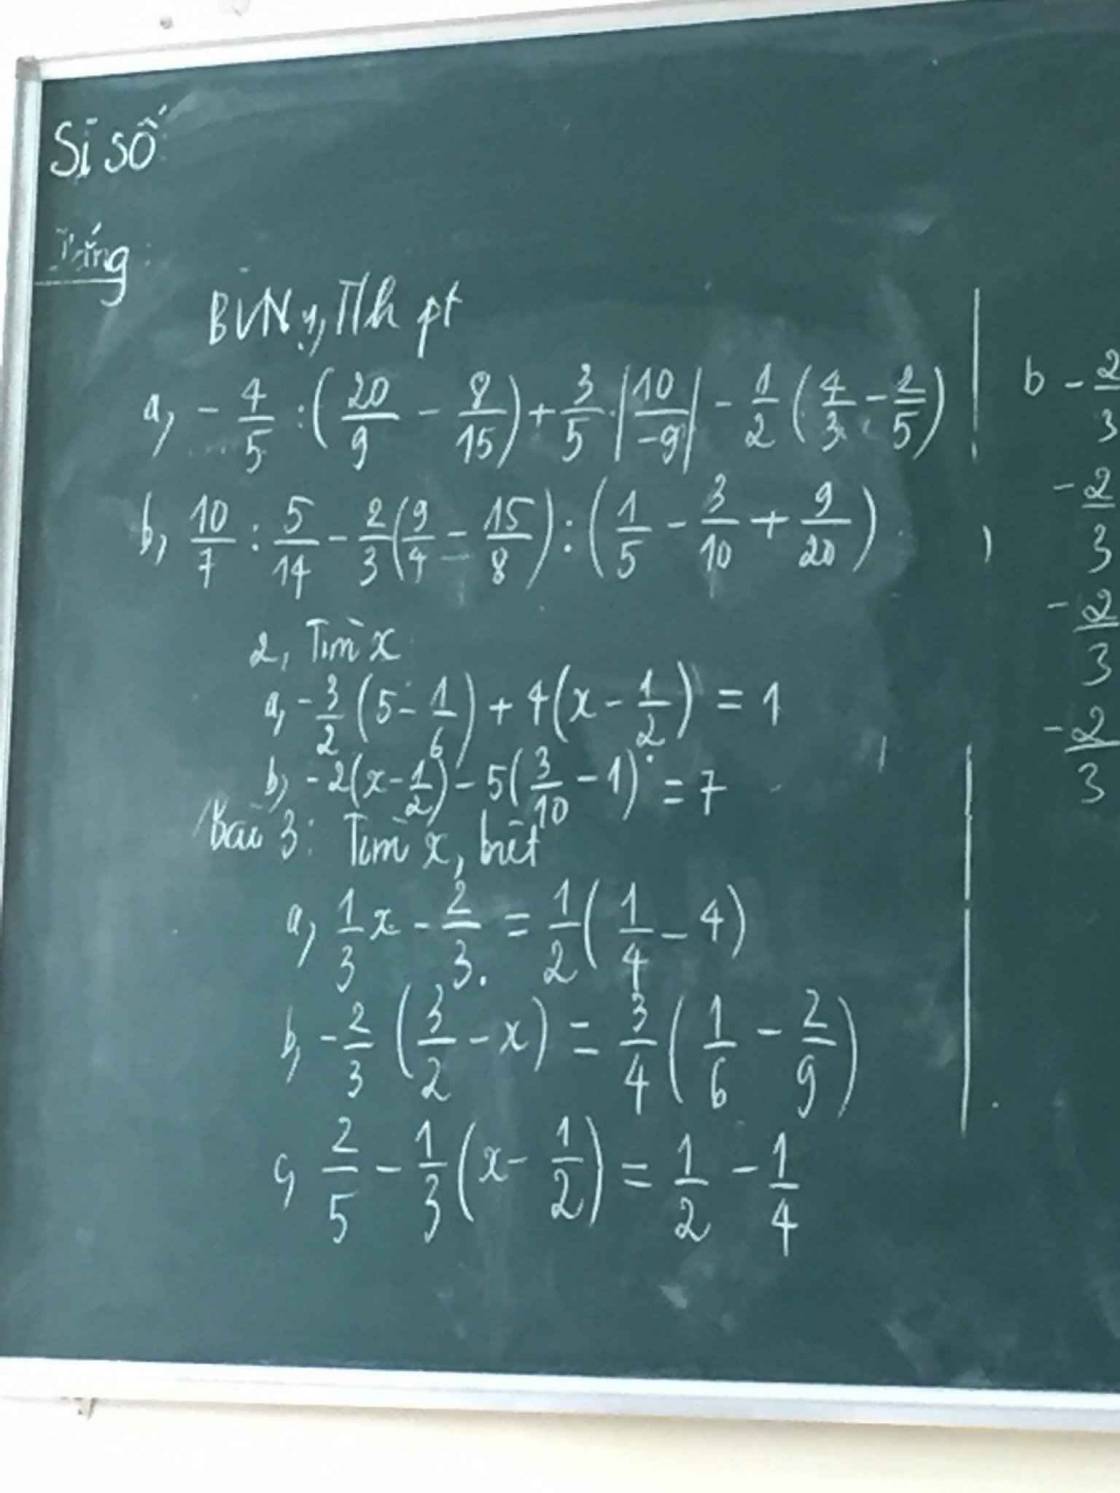 Sĩ số
BVN 1, Th pt
a, - 4/5 : (20/9 - 8/15) + 3/5 . |10/-9| - 1/2 (4/3 - 2/5)
b, 10/7 : 5/14 - 2/3 (9/4 - 15/8) : (1/5 - 3/10 + 9/20)
2, Tìm x
a, - 3/2 (5 - 1/6) + 4(x - 1/2) = 1
b, - 2(x - 1/2) - 5(3/10 - 1) = 7
Bài 3: Tìm x, biết
a, 1/3 x - 2/3 = 1/2 (1/4 - 4)
b, - 2/3 (3/2 - x) = 3/4 (1/6 - 2/9)
c, 2/5 - 1/3 (x - 1/2) = 1/2 - 1/4
b - 2/3
- 2/3
- 2/3
- 2/3